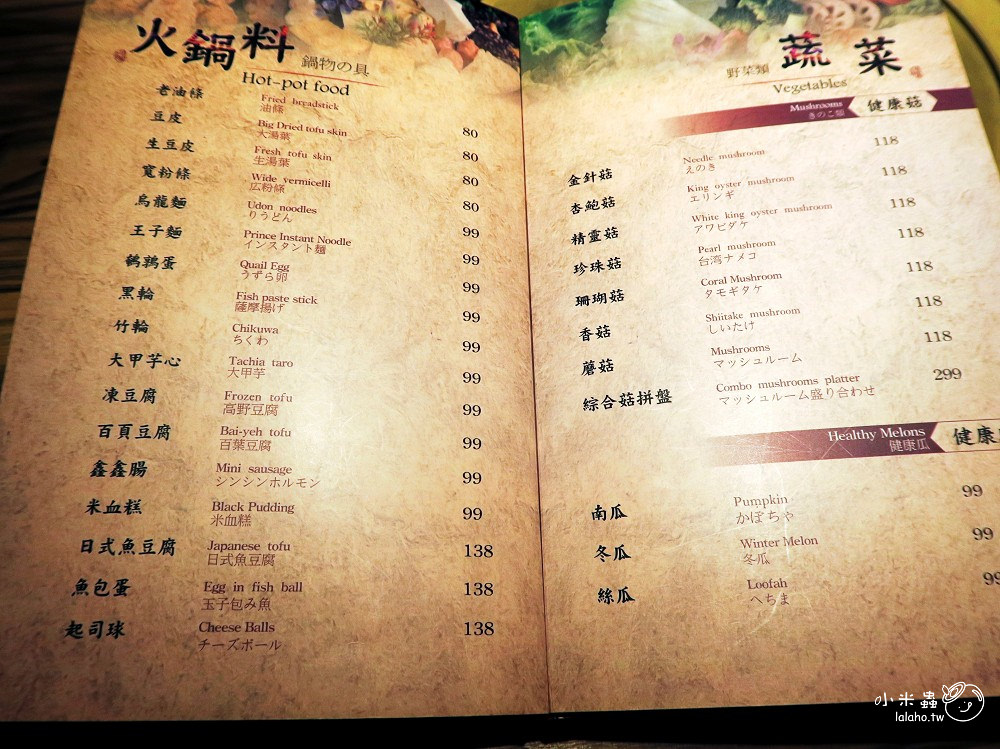 火鍋料 鍋物の具
Hot-pot food
老油條 Fried breadstick 80
油條
豆皮 Big Dried tofu skin 80
大湯葉
生豆皮 Fresh tofu skin 80
生湯葉
寬粉條 Wide vermicelli 80
広粉條
烏龍麵 Udon noodles 99
りうどん
王子麵 Prince Instant Noodle 99
インスタント麵
鵪鶉蛋 Quail Egg 99
うずら卵
黑輪 Fish paste stick 99
薩摩揚げ
竹輪 Chikuwa 99
ちくわ
大甲芋心 Tachia taro 99
大甲芋
凍豆腐 Frozen tofu 99
高野豆腐
百頁豆腐 Bai-yeh tofu 99
百葉豆腐
鑫鑫腸 Mini sausage 99
シンシンホルモン
米血糕 Black Pudding 99
米血糕
日式魚豆腐 Japanese tofu 138
日式魚豆腐
魚包蛋 Egg in fish ball 138
玉子包み魚
起司球 Cheese Balls 138
チーズボール
野菜類 蔬菜
Vegetables
Mushrooms 健康菇
きのこ類
金針菇 Needle mushroom 118
えのき
杏鮑菇 King oyster mushroom 118
エリンギ
精靈菇 White king oyster mushroom 118
アワビダケ
珍珠菇 Pearl mushroom 118
台湾ナメコ
珊瑚菇 Coral Mushroom 118
タモギタケ
香菇 Shiitake mushroom 118
しいたけ
蘑菇 Mushrooms 118
マッシュルーム
綜合菇拼盤 Combo mushrooms platter 299
マッシュルーム盛り合わせ
Healthy Melons 健康
健康瓜
南瓜 Pumpkin 99
かぼちゃ
冬瓜 Winter Melon 99
冬瓜
絲瓜 Loofah 99
へちま
小米蟲
lalaho.tw